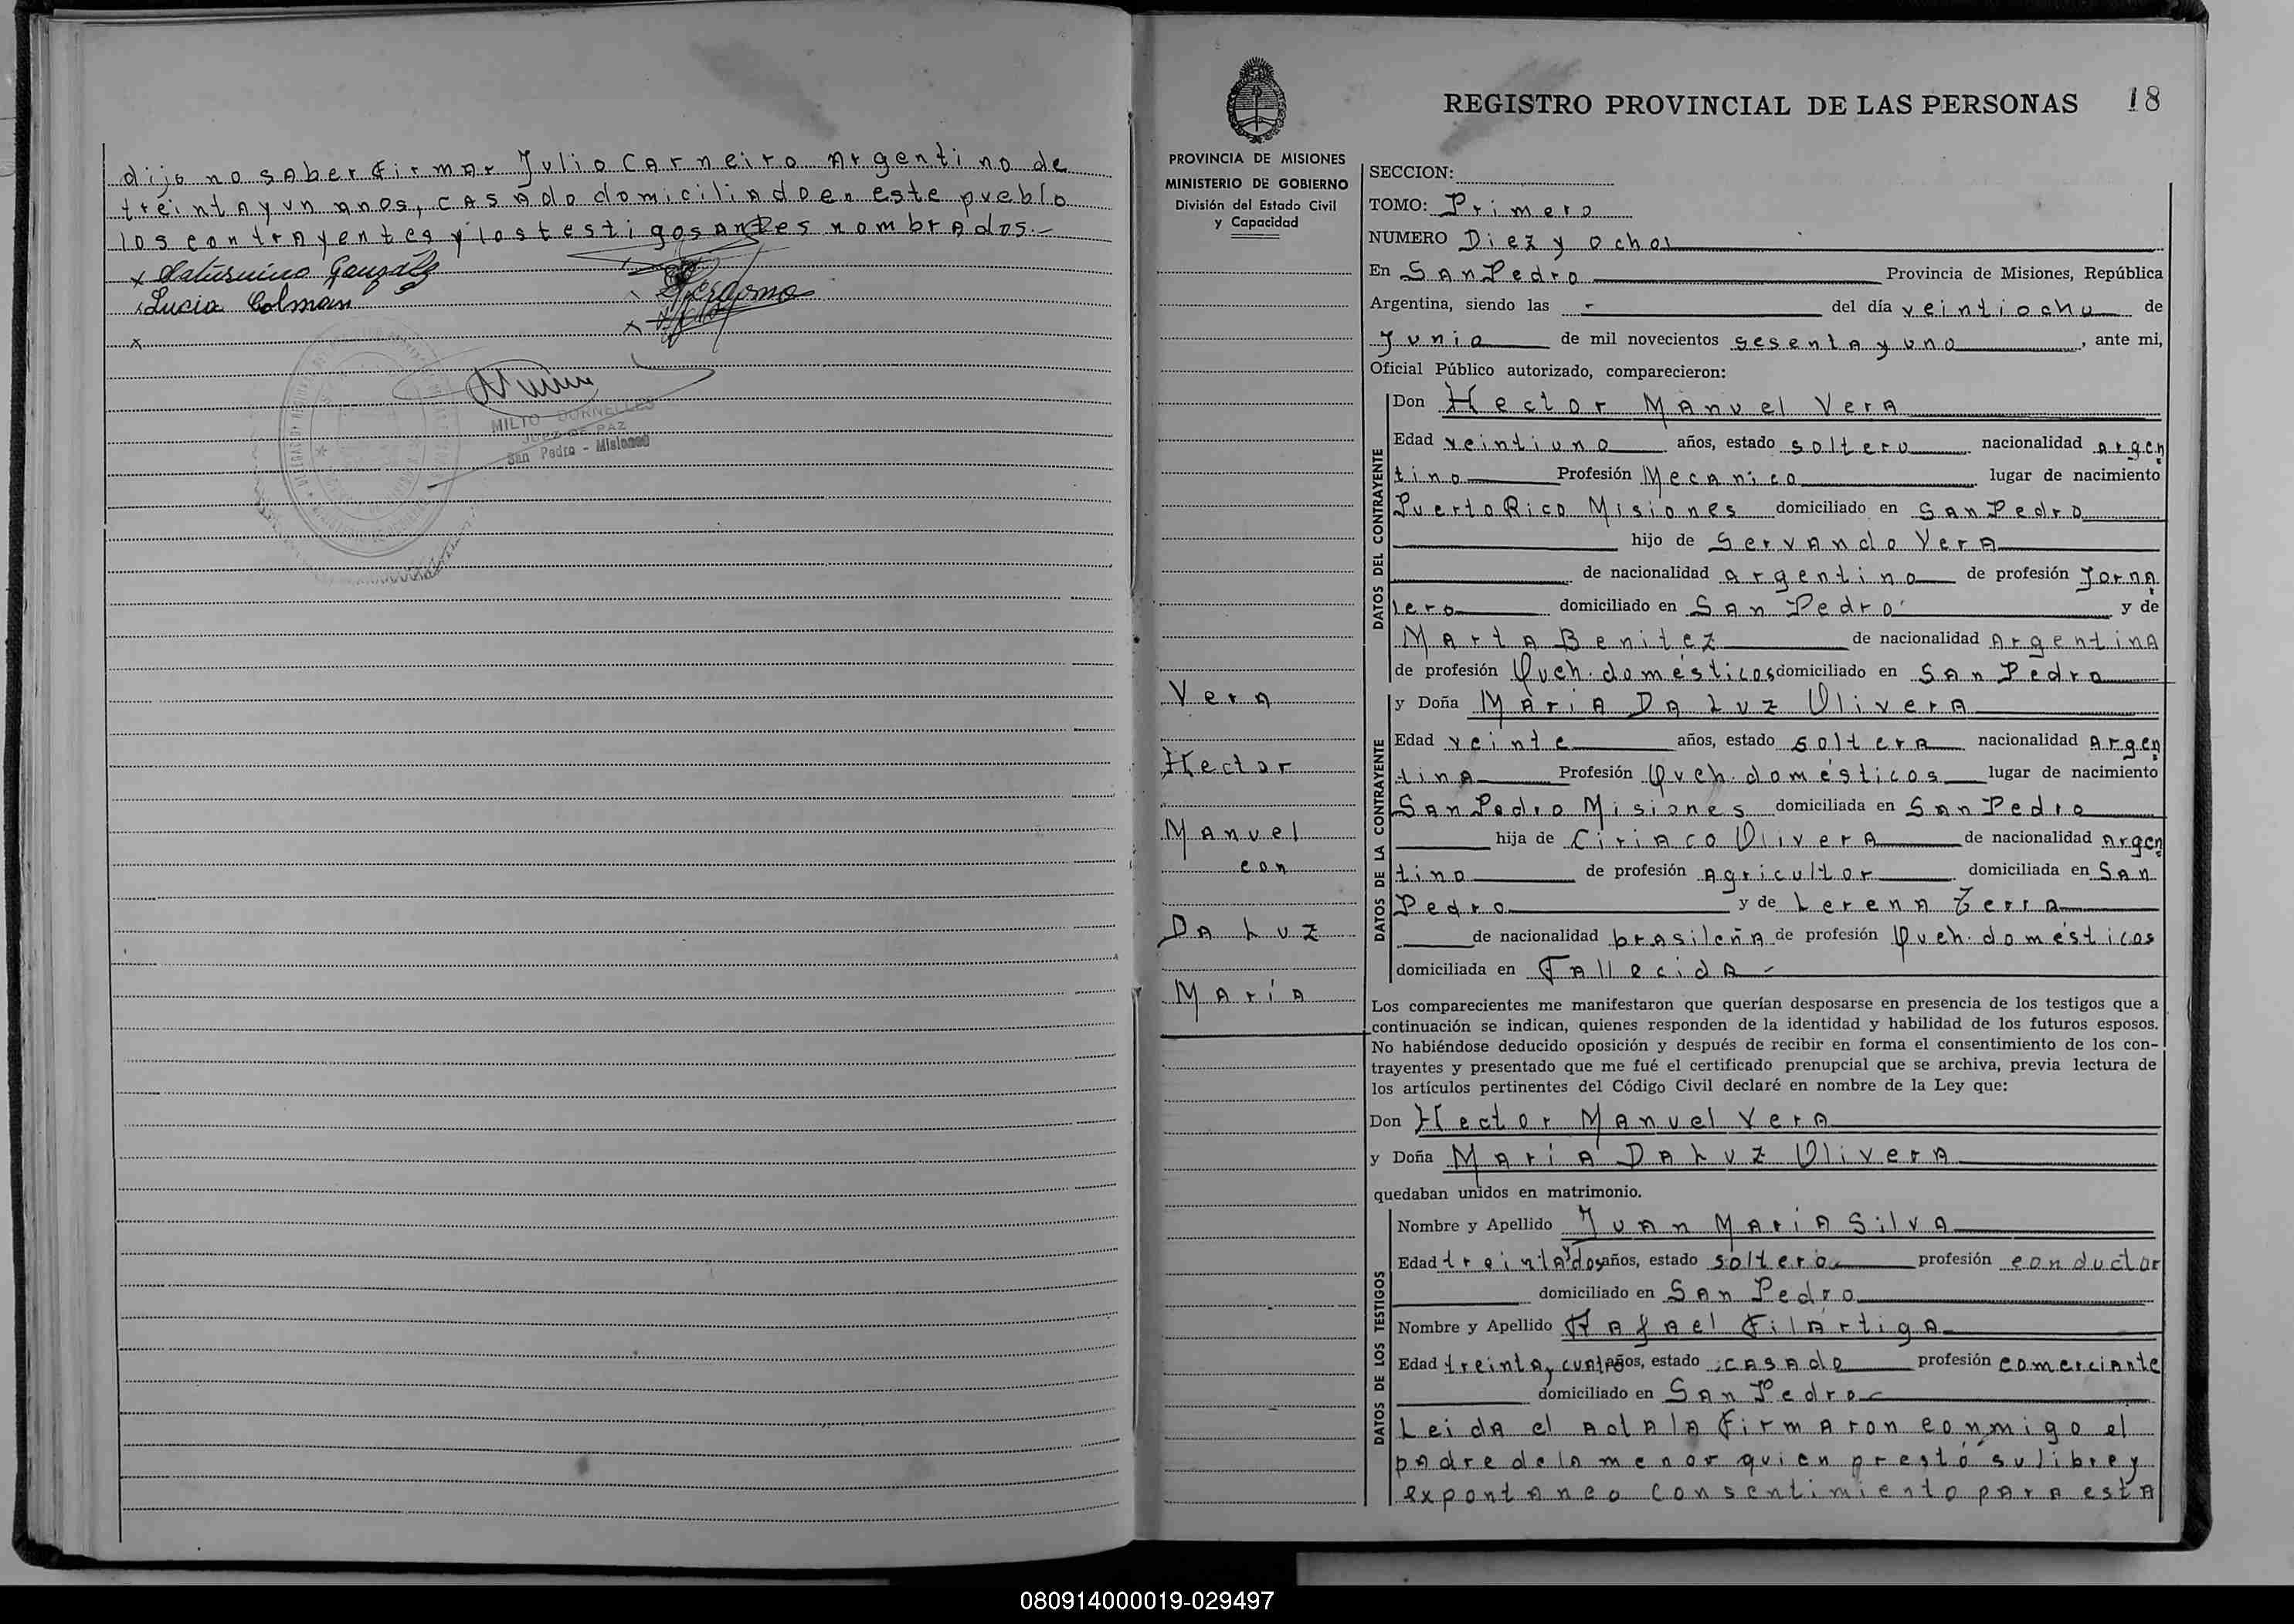 dijo no saber firmar Julio Carneiro Argentino de
treinta y un anos, casado domiciliado en este pueblo
los contrayentes y los testigos antes nombrados.-
x Saturnino González
x Lucia Colman
x
x
MILTO DORNELLES
JUEZ DE PAZ
San Pedro - Misiones
PROVINCIA DE MISIONES
MINISTERIO DE GOBIERNO
División del Estado Civil
y Capacidad
Vera
Hector
Manuel
con
Da Luz
María
REGISTRO PROVINCIAL DE LAS PERSONAS 18
SECCION:
TOMO: Primero
NUMERO Diez y ocho
En San Pedro Provincia de Misiones, República
Argentina, siendo las - del día veintiocho de
Junio de mil novecientos sesenta y uno, ante mi,
Oficial Público autorizado, comparecieron:
DATOS DEL CONTRAYENTE
Don Hector Manuel Vera
Edad veintiuno años, estado soltero nacionalidad argen
tino Profesión Mecanico lugar de nacimiento
Puerto Rico Misiones domiciliado en San Pedro
hijo de Servando Vera
de nacionalidad argentino de profesión Jorna
lero domiciliado en San Pedro y de
Marta Benitez de nacionalidad Argentina
de profesión Queh. domésticos domiciliado en San Pedro
DATOS DE LA CONTRAYENTE
y Doña María Da Luz Olivera
Edad veinte años, estado soltera nacionalidad Argen
tina Profesión Queh. domésticos lugar de nacimiento
San Pedro Misiones domiciliada en San Pedro
hija de Ciriaco Olivera de nacionalidad Argen
tino de profesión Agricultor domiciliada en San
Pedro y de Lerena Terra
de nacionalidad brasileña de profesión Queh. domésticos
domiciliada en Fallecida -
Los comparecientes me manifestaron que querían desposarse en presencia de los testigos que a
continuación se indican, quienes responden de la identidad y habilidad de los futuros esposos.
No habiéndose deducido oposición y después de recibir en forma el consentimiento de los con-
trayentes y presentado que me fué el certificado prenupcial que se archiva, previa lectura de
los artículos pertinentes del Código Civil declaré en nombre de la Ley que:
Don Hector Manuel Vera
y Doña María Da Luz Olivera
quedaban unidos en matrimonio.
DATOS DE LOS TESTIGOS
Nombre y Apellido Juan María Silva
Edad treinta y dos años, estado soltero profesión conductor
domiciliado en San Pedro
Nombre y Apellido Rafael Filártiga
Edad treinta y cuatro años, estado casado profesión comerciante
domiciliado en San Pedro
Leida el acta la firmaron conmigo el
padre de la menor quien prestó su libre y
expontaneo consentimiento para esta
080914000019-029497